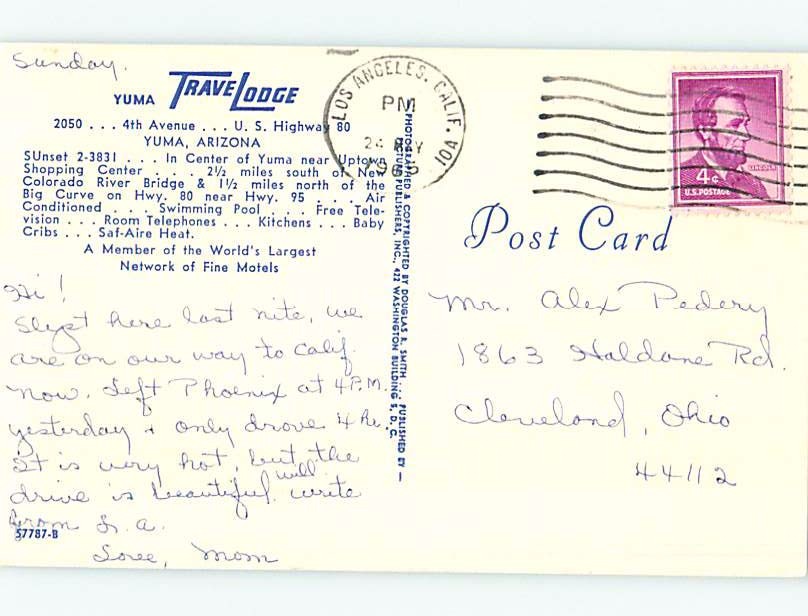 Sunday.
YUMA TRAVELODGE
2050 . . . 4th Avenue . . . U. S. Highway 80
YUMA, ARIZONA
SUnset 2-3831 . . . In Center of Yuma near Uptown
Shopping Center . . . 2½ miles south of New
Colorado River Bridge & 1½ miles north of the
Big Curve on Hwy. 80 near Hwy. 95 . . . Air
Conditioned . . . Swimming Pool . . . Free Tele-
vision . . . Room Telephones . . . Kitchens . . . Baby
Cribs . . . Saf-Aire Heat.
A Member of the World's Largest
Network of Fine Motels
Hi!
Slept here last nite, we
are on our way to Calif.
now. Left Phoenix at 4 P.M.
yesterday + only drove 4 hr.
It is very hot, but the
drive is beautiful. will write
from L.A.
Love, Mom
57787-B
PHOTOGRAPHED & COPYRIGHTED BY DOUGLAS R. SMITH PUBLISHED BY —
PICTURE PUBLISHERS, INC., 422 WASHINGTON BUILDING 5, D. C.
LOS ANGELES, CALIF. 10A
PM
24
LINCOLN
4¢
U.S. POSTAGE
Post Card
Mr. Alex Pedery
1863 Haldane Rd.
Cleveland, Ohio
44112